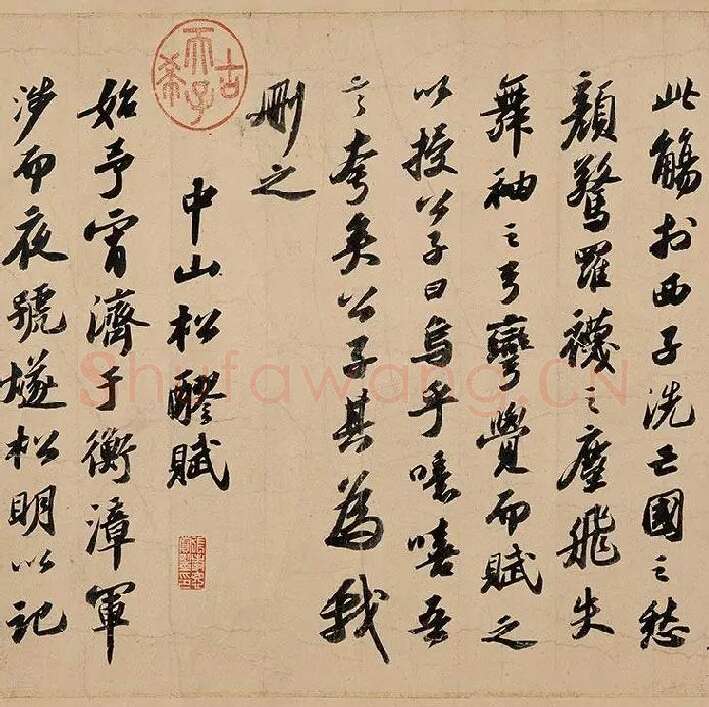 此觴扵西子洗亡國之愁
顏驚羅襪之塵飛失
舞袖之弓彎覺而賦之
以授公子曰烏乎噫嘻吾
言夸矣公子其為我
刪之
中山松醪賦
始予宵濟于衡漳軍
涉而夜號燧松明以記
古希天子
Shufawang.CN